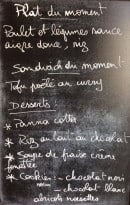 Plat du moment
Poulet et légumes sauce
aigre douce, riz
Sandwich du moment
Tofu poêlé au curry
Desserts
* Panna cotta
* Riz au lait au chocolat
* Soupe de fraise crème
* Cookies : - chocolat noir
- chocolat blanc
abricot noisettes